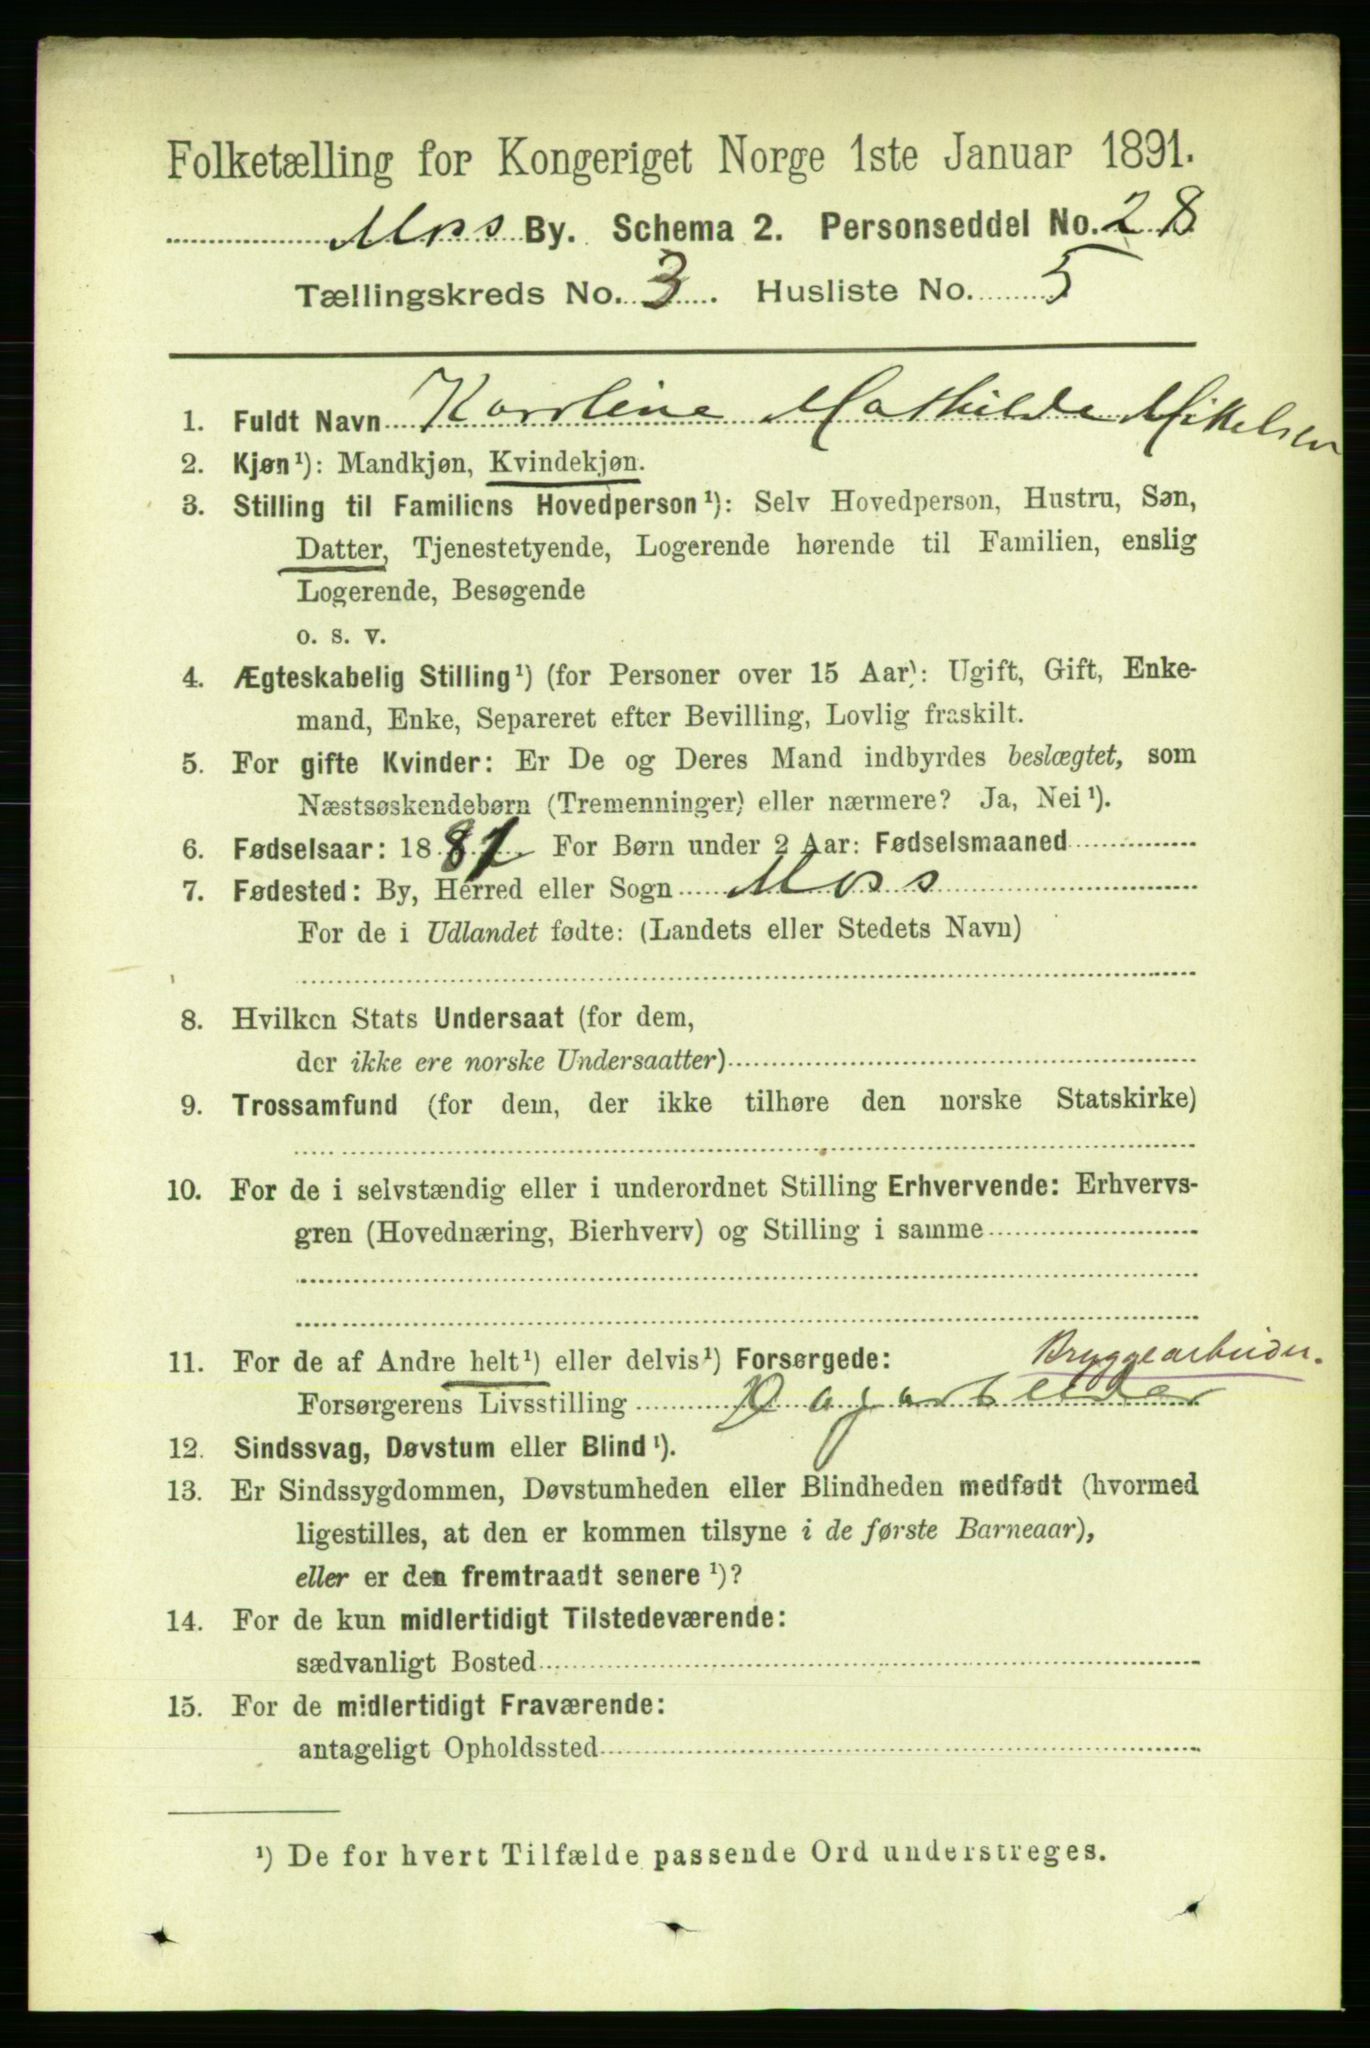 Folketælling for Kongeriget Norge 1ste Januar 1891.
Moss By. Schema 2. Personseddel No. 28
Tællingskreds No. 3. Husliste No. 5
1. Fuldt Navn Karoline Mathilde Mikkelsen
2. Kjøn¹): Mandkjøn, Kvindekjøn.
3. Stilling til Familiens Hovedperson¹): Selv Hovedperson, Hustru, Søn,
Datter, Tjenestetyende, Logerende hørende til Familien, enslig
Logerende, Besøgende
o. s. v.
4. Ægteskabelig Stilling¹) (for Personer over 15 Aar): Ugift, Gift, Enke-
mand, Enke, Separeret efter Bevilling, Lovlig fraskilt.
5. For gifte Kvinder: Er De og Deres Mand indbyrdes beslægtet, som
Næstsøskendebørn (Tremenninger) eller nærmere? Ja, Nei¹).
6. Fødselsaar: 1887. For Børn under 2 Aar: Fødselsmaaned
7. Fødested: By, Herred eller Sogn Moss
For de i Udlandet fødte: (Landets eller Stedets Navn)
8. Hvilken Stats Undersaat (for dem,
der ikke ere norske Undersaatter)
9. Trossamfund (for dem, der ikke tilhøre den norske Statskirke)
10. For de i selvstændig eller i underordnet Stilling Erhvervende: Erhvervs-
gren (Hovednæring, Bierhverv) og Stilling i samme
11. For de af Andre helt¹) eller delvis¹) Forsørgede: Bryggearbeider.
Forsørgerens Livsstilling Dagarbeider
12. Sindssvag, Døvstum eller Blind¹).
13. Er Sindssygdommen, Døvstumheden eller Blindheden medfødt (hvormed
ligestilles, at den er kommen tilsyne i de første Barneaar),
eller er den fremtraadt senere¹)?
14. For de kun midlertidigt Tilstedeværende:
sædvanligt Bosted
15. For de midlertidigt Fraværende:
antageligt Opholdssted
¹) De for hvert Tilfælde passende Ord understreges.